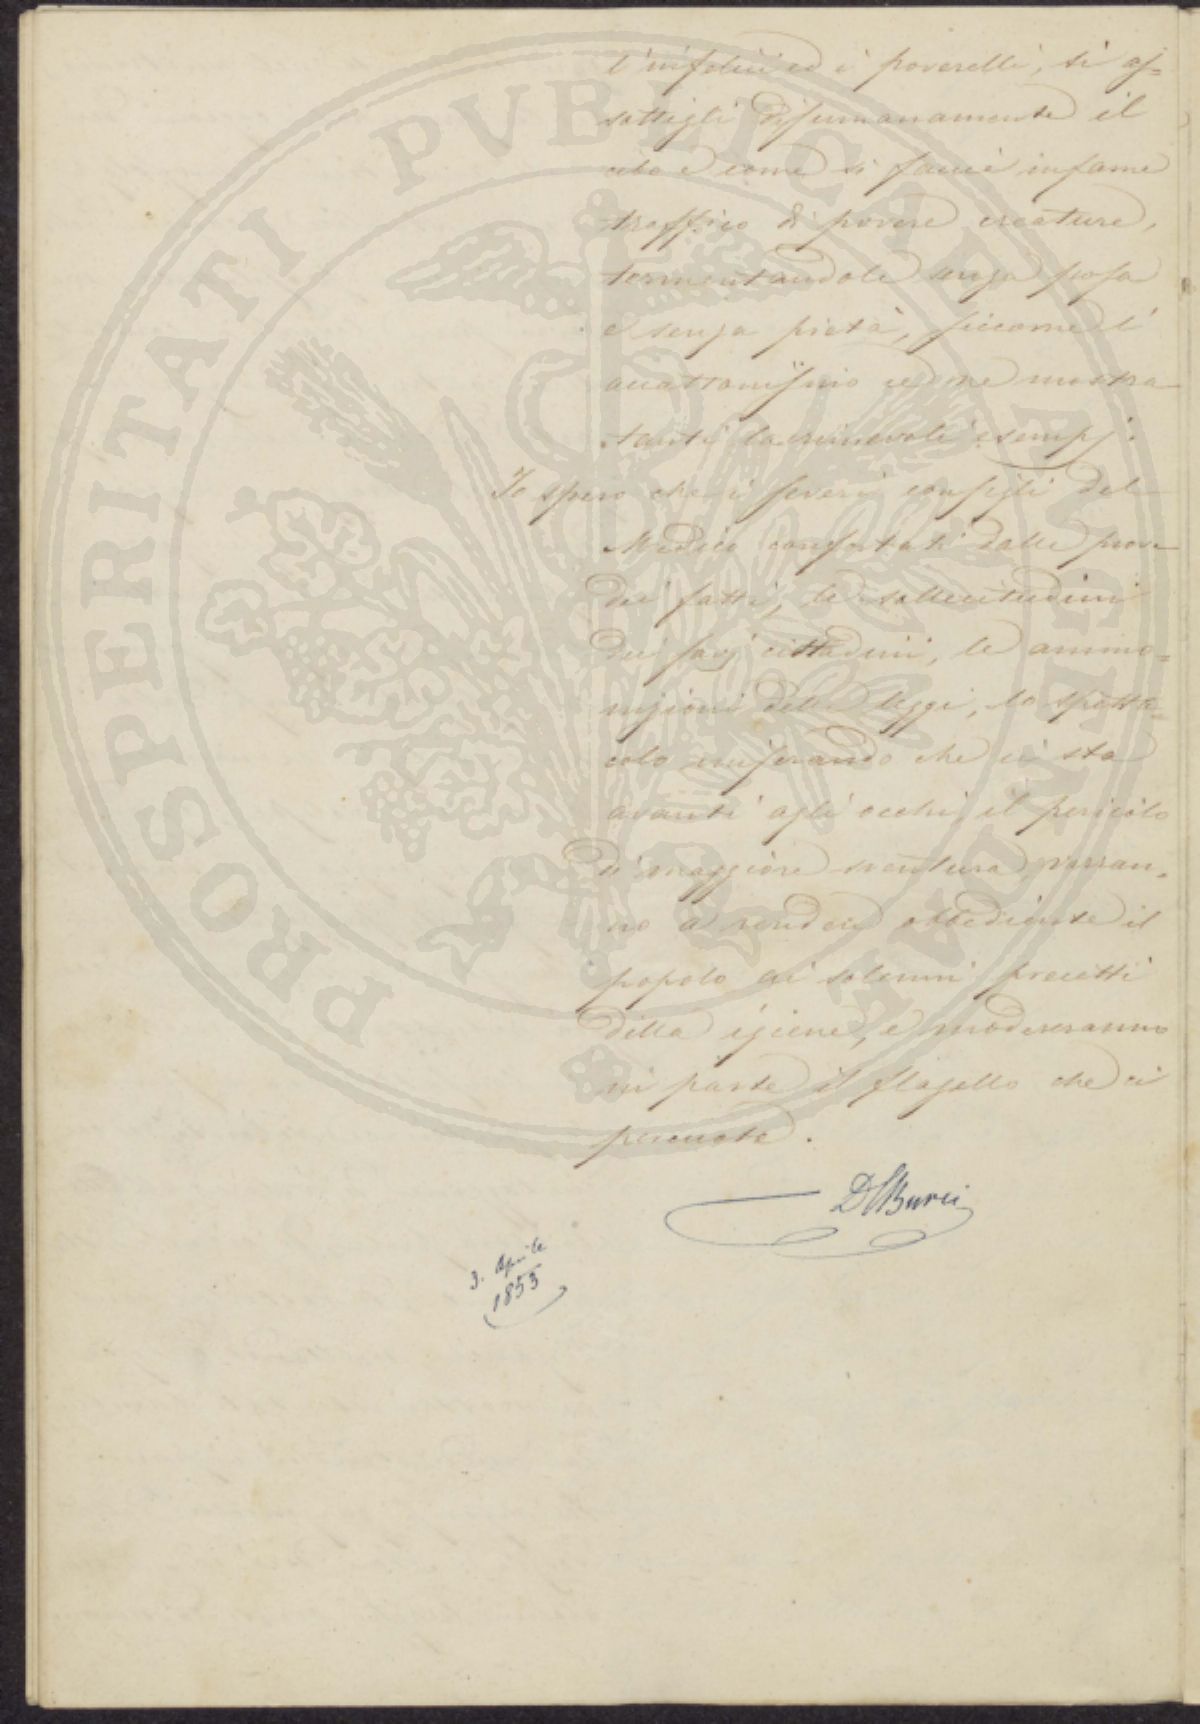 l'infelici ed i poverelli, si as=
sottigli disumanamente il
cibo e come si faccia infame
traffico di povere creature,
tormentandole senza posa
e senza pietà, siccome l'
accattonismo ce ne mostra
tanti lacrimevoli esempj.
Io spero che i severi consigli del
Medico confortati dalle prove
dei fatti, le sollecitudini
dei savj cittadini, le ammo=
nizioni delle leggi, lo spetta=
colo miserando che ci sta
avanti agli occhi, il pericolo
di maggiore sventura varran=
no a rendere obbediente il
popolo ai solenni precetti
della igiene, e modereranno
in parte il flagello che ci
percuote.
D Burci
3. Aprile
1855
PROSPERITATI PVBLICAE AVGENDAE